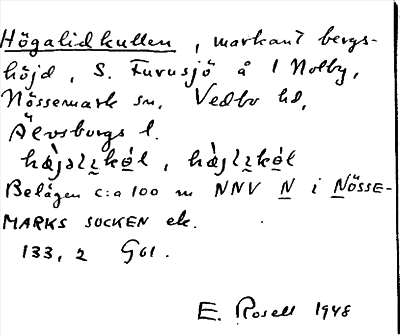 Högalidkullen, markant bergs-
höjd, S. Furusjö å 1 Nolby,
Nössemark sn, Vedbo hd,
Älvsborgs l.
Belägen c:a 100 m NNV N i NÖSSE-
MARKS SOCKEN ek.
133, 2 Göl.
E. Rosell 1948